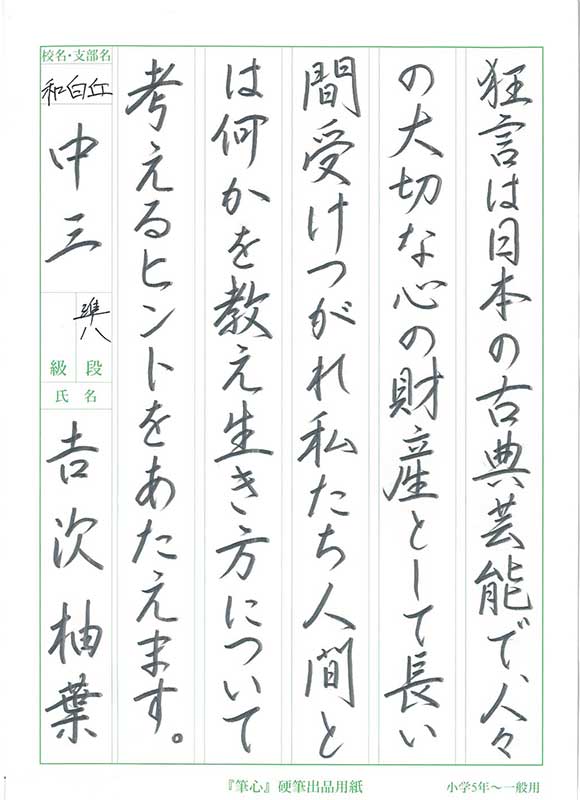 狂言は日本の古典芸能で、人々
の大切な心の財産として長い
間受けつがれ私たち人間と
は何かを教え生き方について
考えるヒントをあたえます。
校名・支部名
和白丘
中三
準八
段級
氏名
吉次柚葉
『筆心』硬筆出品用紙
小学5年~一般用